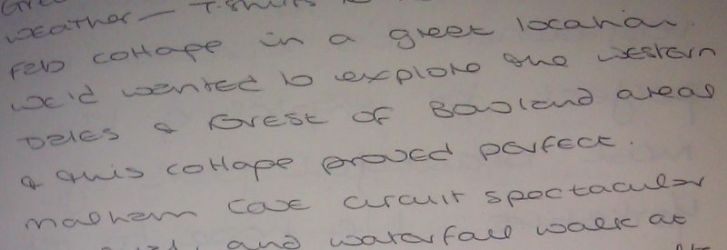 weather - T-shirts
Fab cottage in a great location.
We'd wanted to explore the western
Dales & Forest of Bowland areas
& this cottage proved perfect.
Malham Cove circuit spectacular
and waterfall walk at